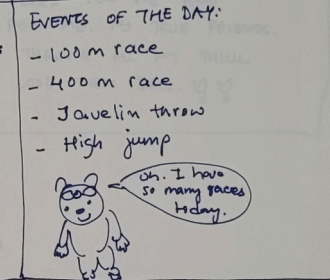 EVENTS OF THE DAY:
- 100 m race
- 400 m race
- Javelin throw
- High jump
Oh. I have
so many races
today.